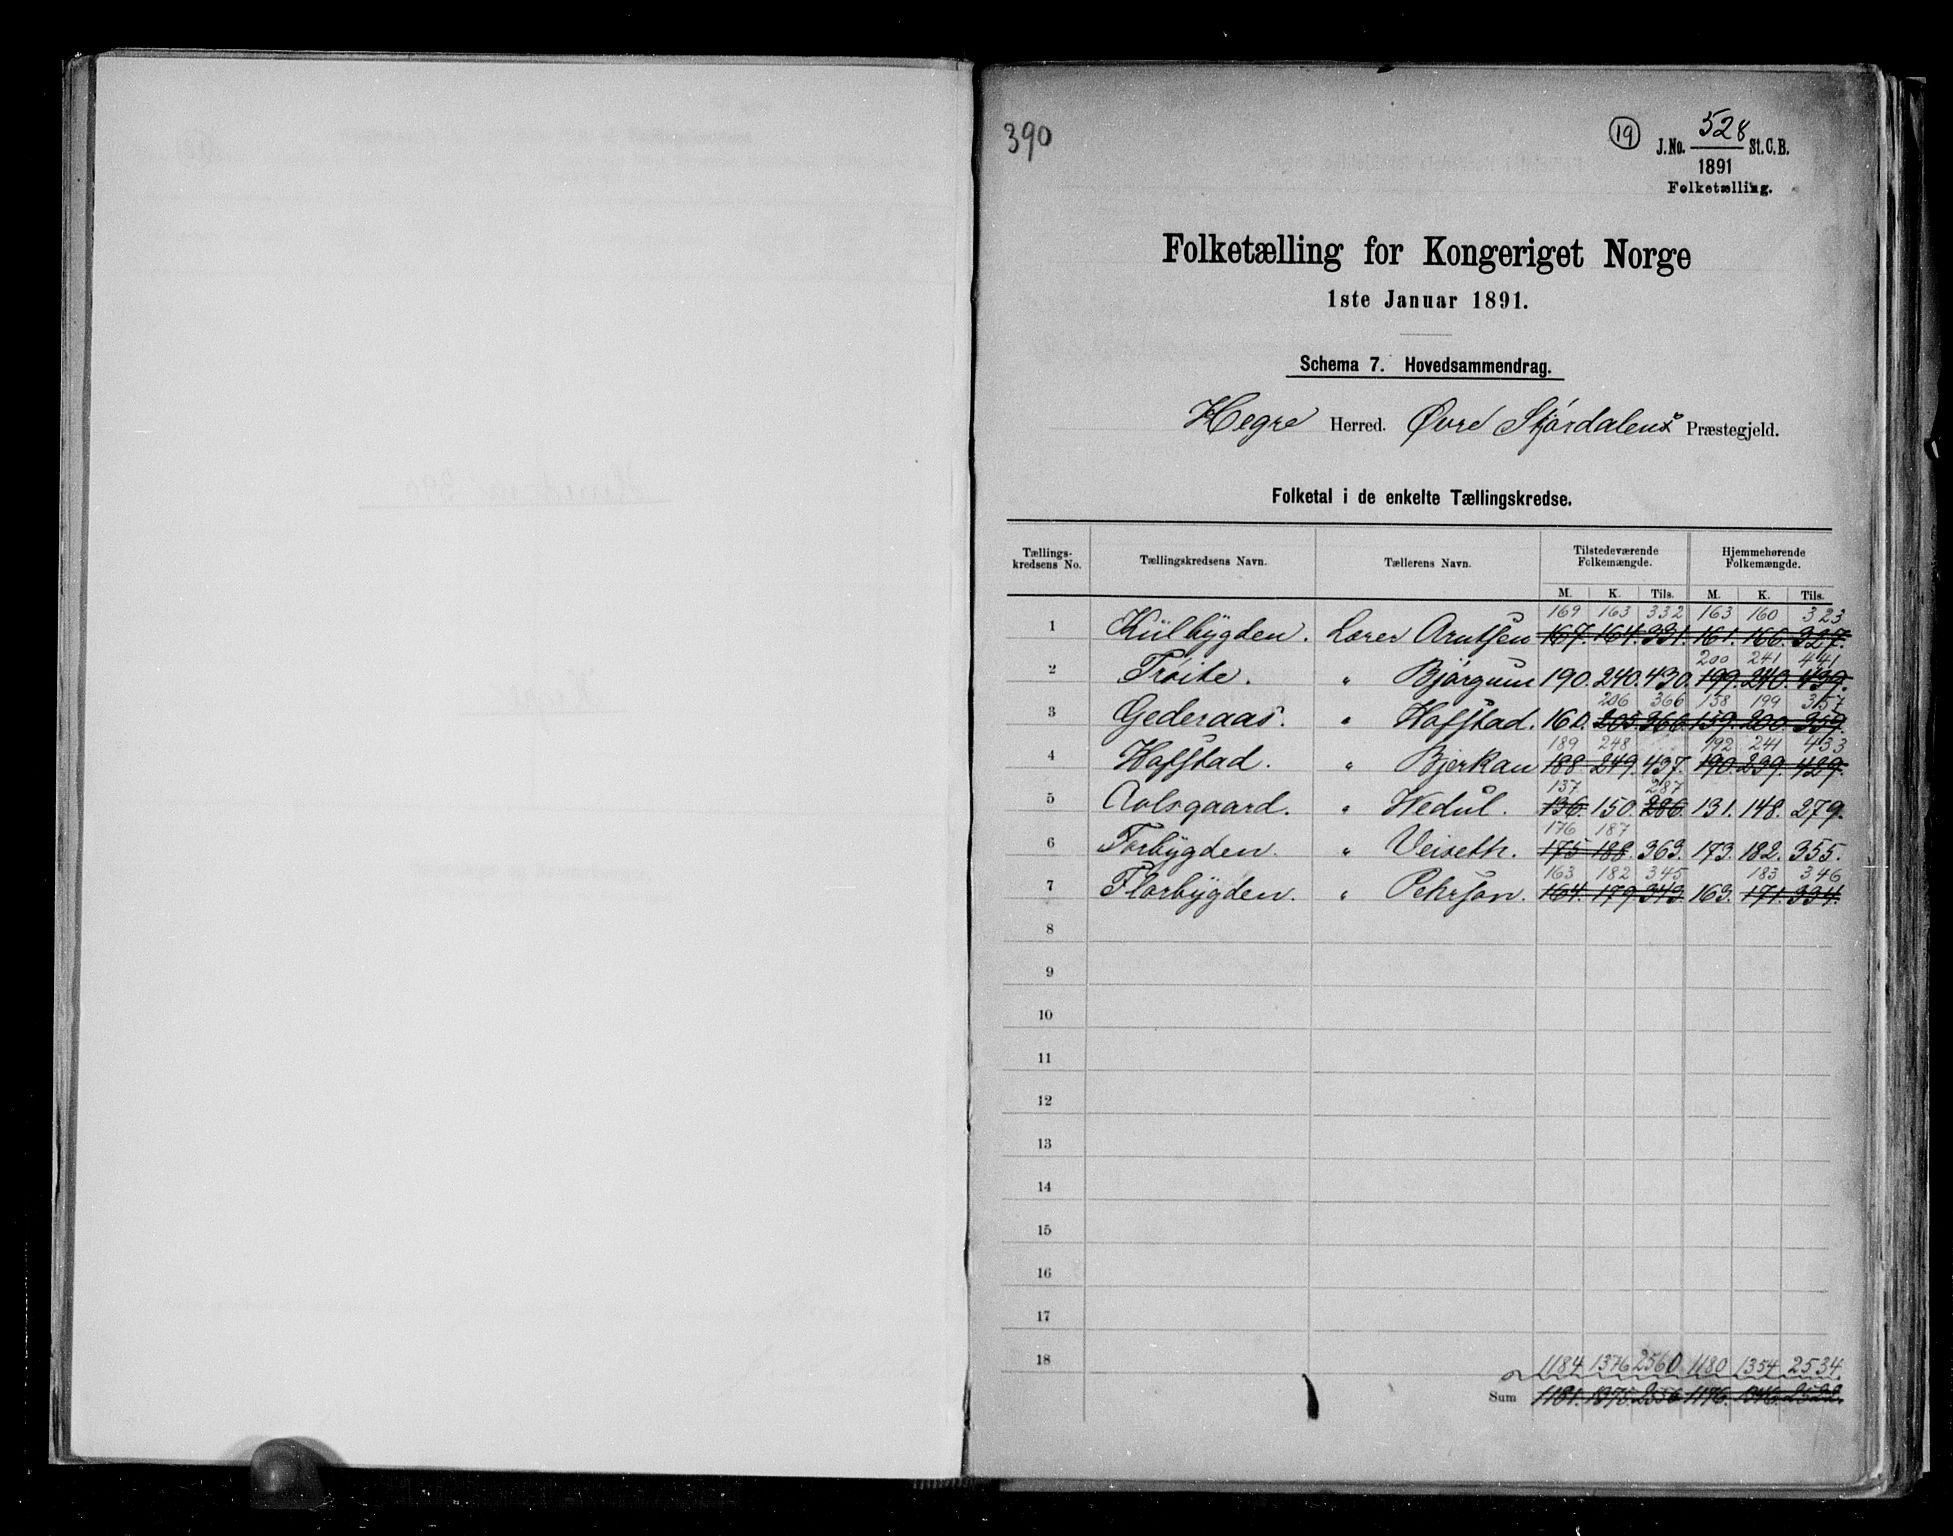 390
19
J.No. 528 St.C.B.
1891
Folketælling.
Folketælling for Kongeriget Norge
1ste Januar 1891.
Schema 7. Hovedsammendrag.
Hegre Herred. Øvre Stjørdalens Præstegjeld.
Folketal i de enkelte Tællingskredse.
Tællings- kredsens No. Tællingskredsens Navn. Tællerens Navn. Tilstedeværende Folkemængde. Hjemmehørende Folkemængde.
M. K. Tils. M. K. Tils.
169 163 332 163 160 323
1 Külbygden. Lærer Arntsen 167. 164. 331. 161. 166. 327.
200 241 441
2 Trøite. " Bjørgum 190. 240. 430. 199. 240. 439.
206 366 158 199 357
3 Gederaas. " Hofstad. 160. 205. 366. 159. 200. 359.
189 248 192 241 433
4 Hofstad. " Bjerkan 188. 249. 437. 190. 239. 429.
137 287
5 " Wedul. 136. 150. 286. 131. 148. 279.
176 187
6 Forbygden. " Veiseth. 175 188. 363. 173. 182. 355.
163 182 345 183 346
7 Flørbygden. " Pehrson. 164. 179 343. 163. 171. 334.
8
9
10
11
12
13
14
15
16
17
18 1184 1376 2560 1180 1354 2534
Sum 1181. 1375. 2556 1176. 1346. 2522.